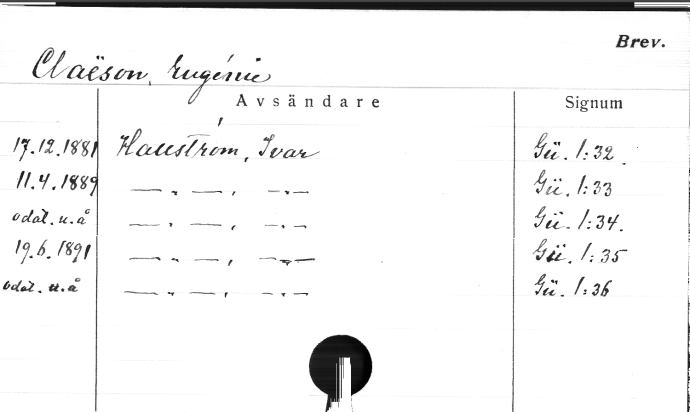 Brev.
Claëson, Eugénie
Avsändare Signum
17.12.1881 Hallström, Ivar Gü. 1:32.
11.4.1889 — „ —, — „ — Gü. 1:33
odat. u.å — „ —, — „ — Gü. 1:34.
19.6.1891 — „ —, — „ — Gü. 1:35
odat. u.å — „ —, — „ — Gü. 1:36